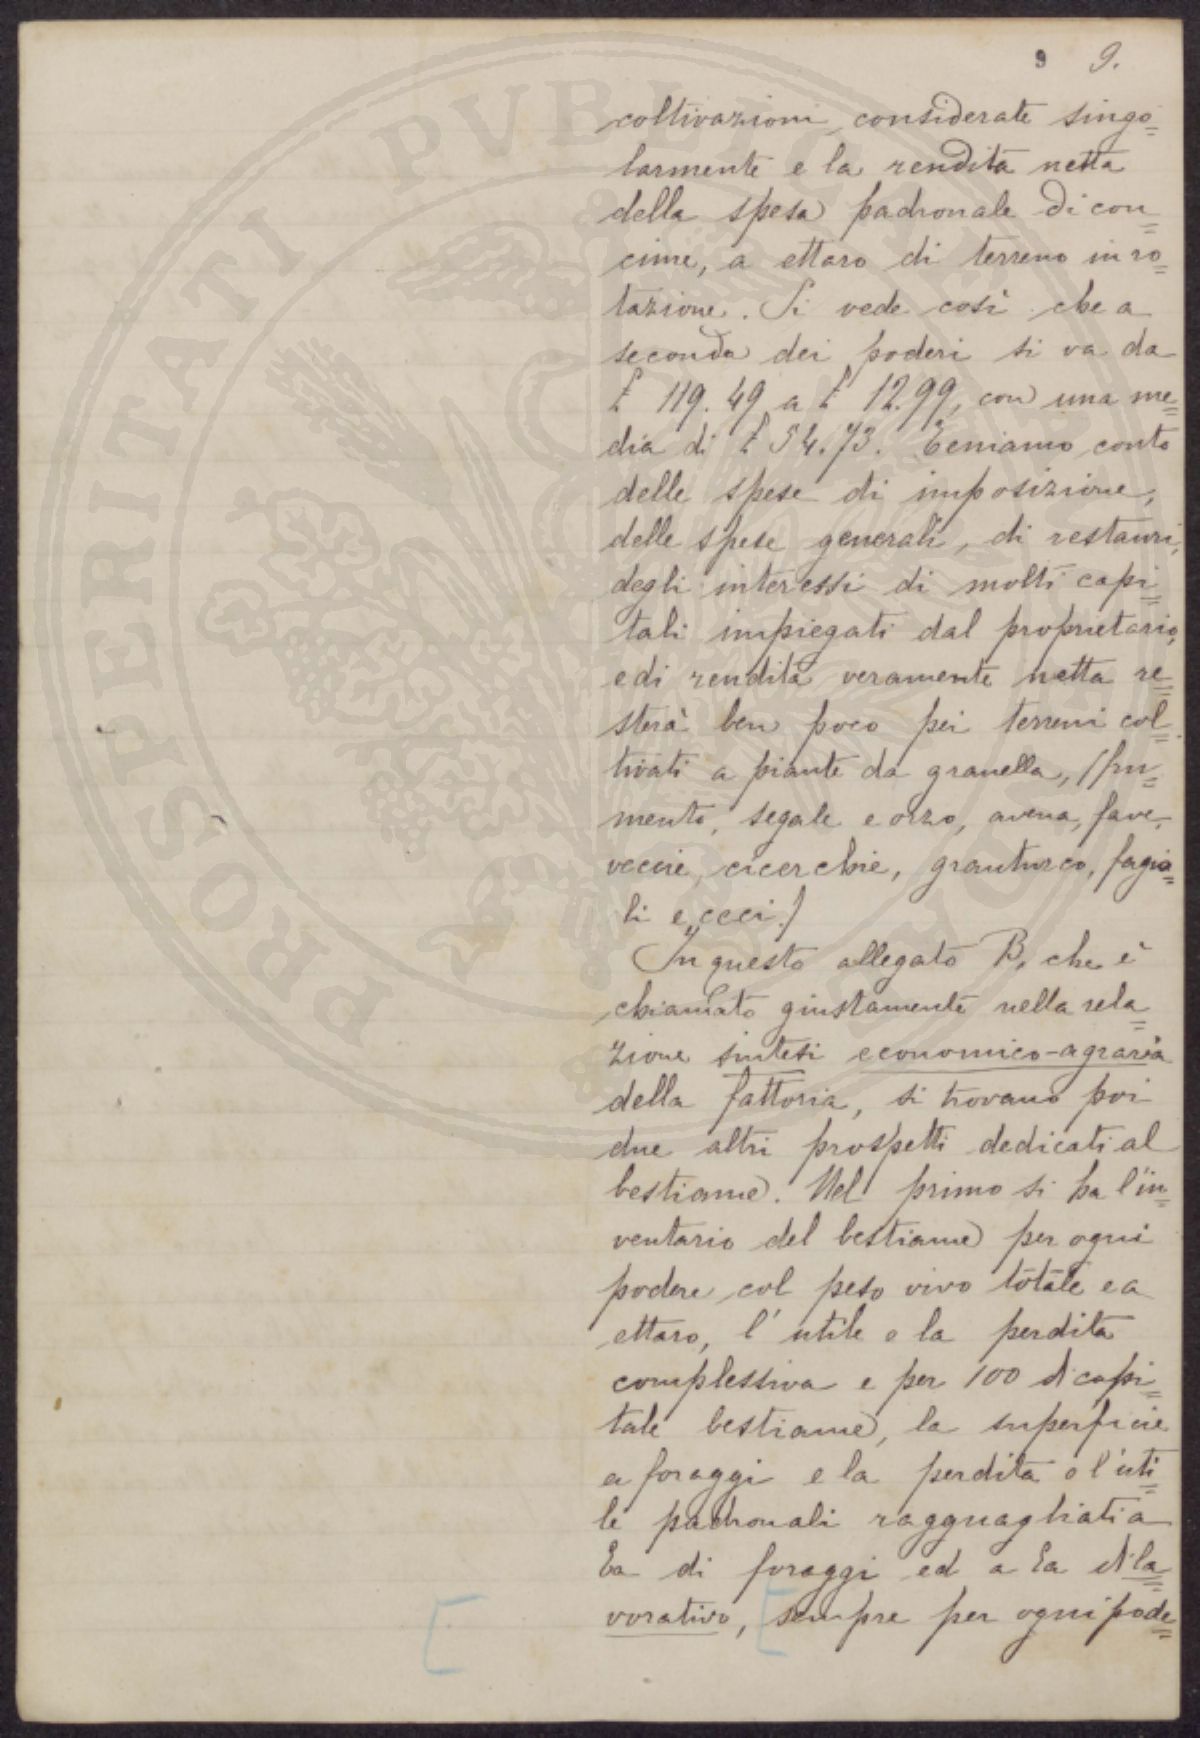 9 9.
coltivazioni considerate singo=
larmente e la rendita netta
della spesa padronale di con=
cime, a ettaro di terreno in ro=
tazione. Si vede così che a
seconda dei poderi si va da
£ 119.49 a £ 12.99, con una me=
dia di £ 54.73. Teniamo conto
delle spese di imposizione,
delle spese generali, di restauri,
degli interessi di molti capi=
tali impiegati dal proprietario,
e di rendita veramente netta re=
sterà ben poco pei terreni col=
tivati a piante da granella, (fru=
mento, segale e orzo, avena, fave,
veccie, cicerchie, granturco, fagio=
li e ceci.)
In questo allegato B, che è
chiamato giustamente nella rela=
zione sintesi economico-agraria
della fattoria, si trovano poi
due altri prospetti dedicati al
bestiame. Nel primo si ha l'in=
ventario del bestiame per ogni
podere col peso vivo totale e a
ettaro, l'utile o la perdita
complessiva e per 100 di capi=
tale bestiame, la superficie
a foraggi e la perdita o l'uti=
le padronali ragguagliati a
Ea di foraggi ed a Ea di la=
vorativo, sempre per ogni pode=
PROSPERITATI PVBLICAE